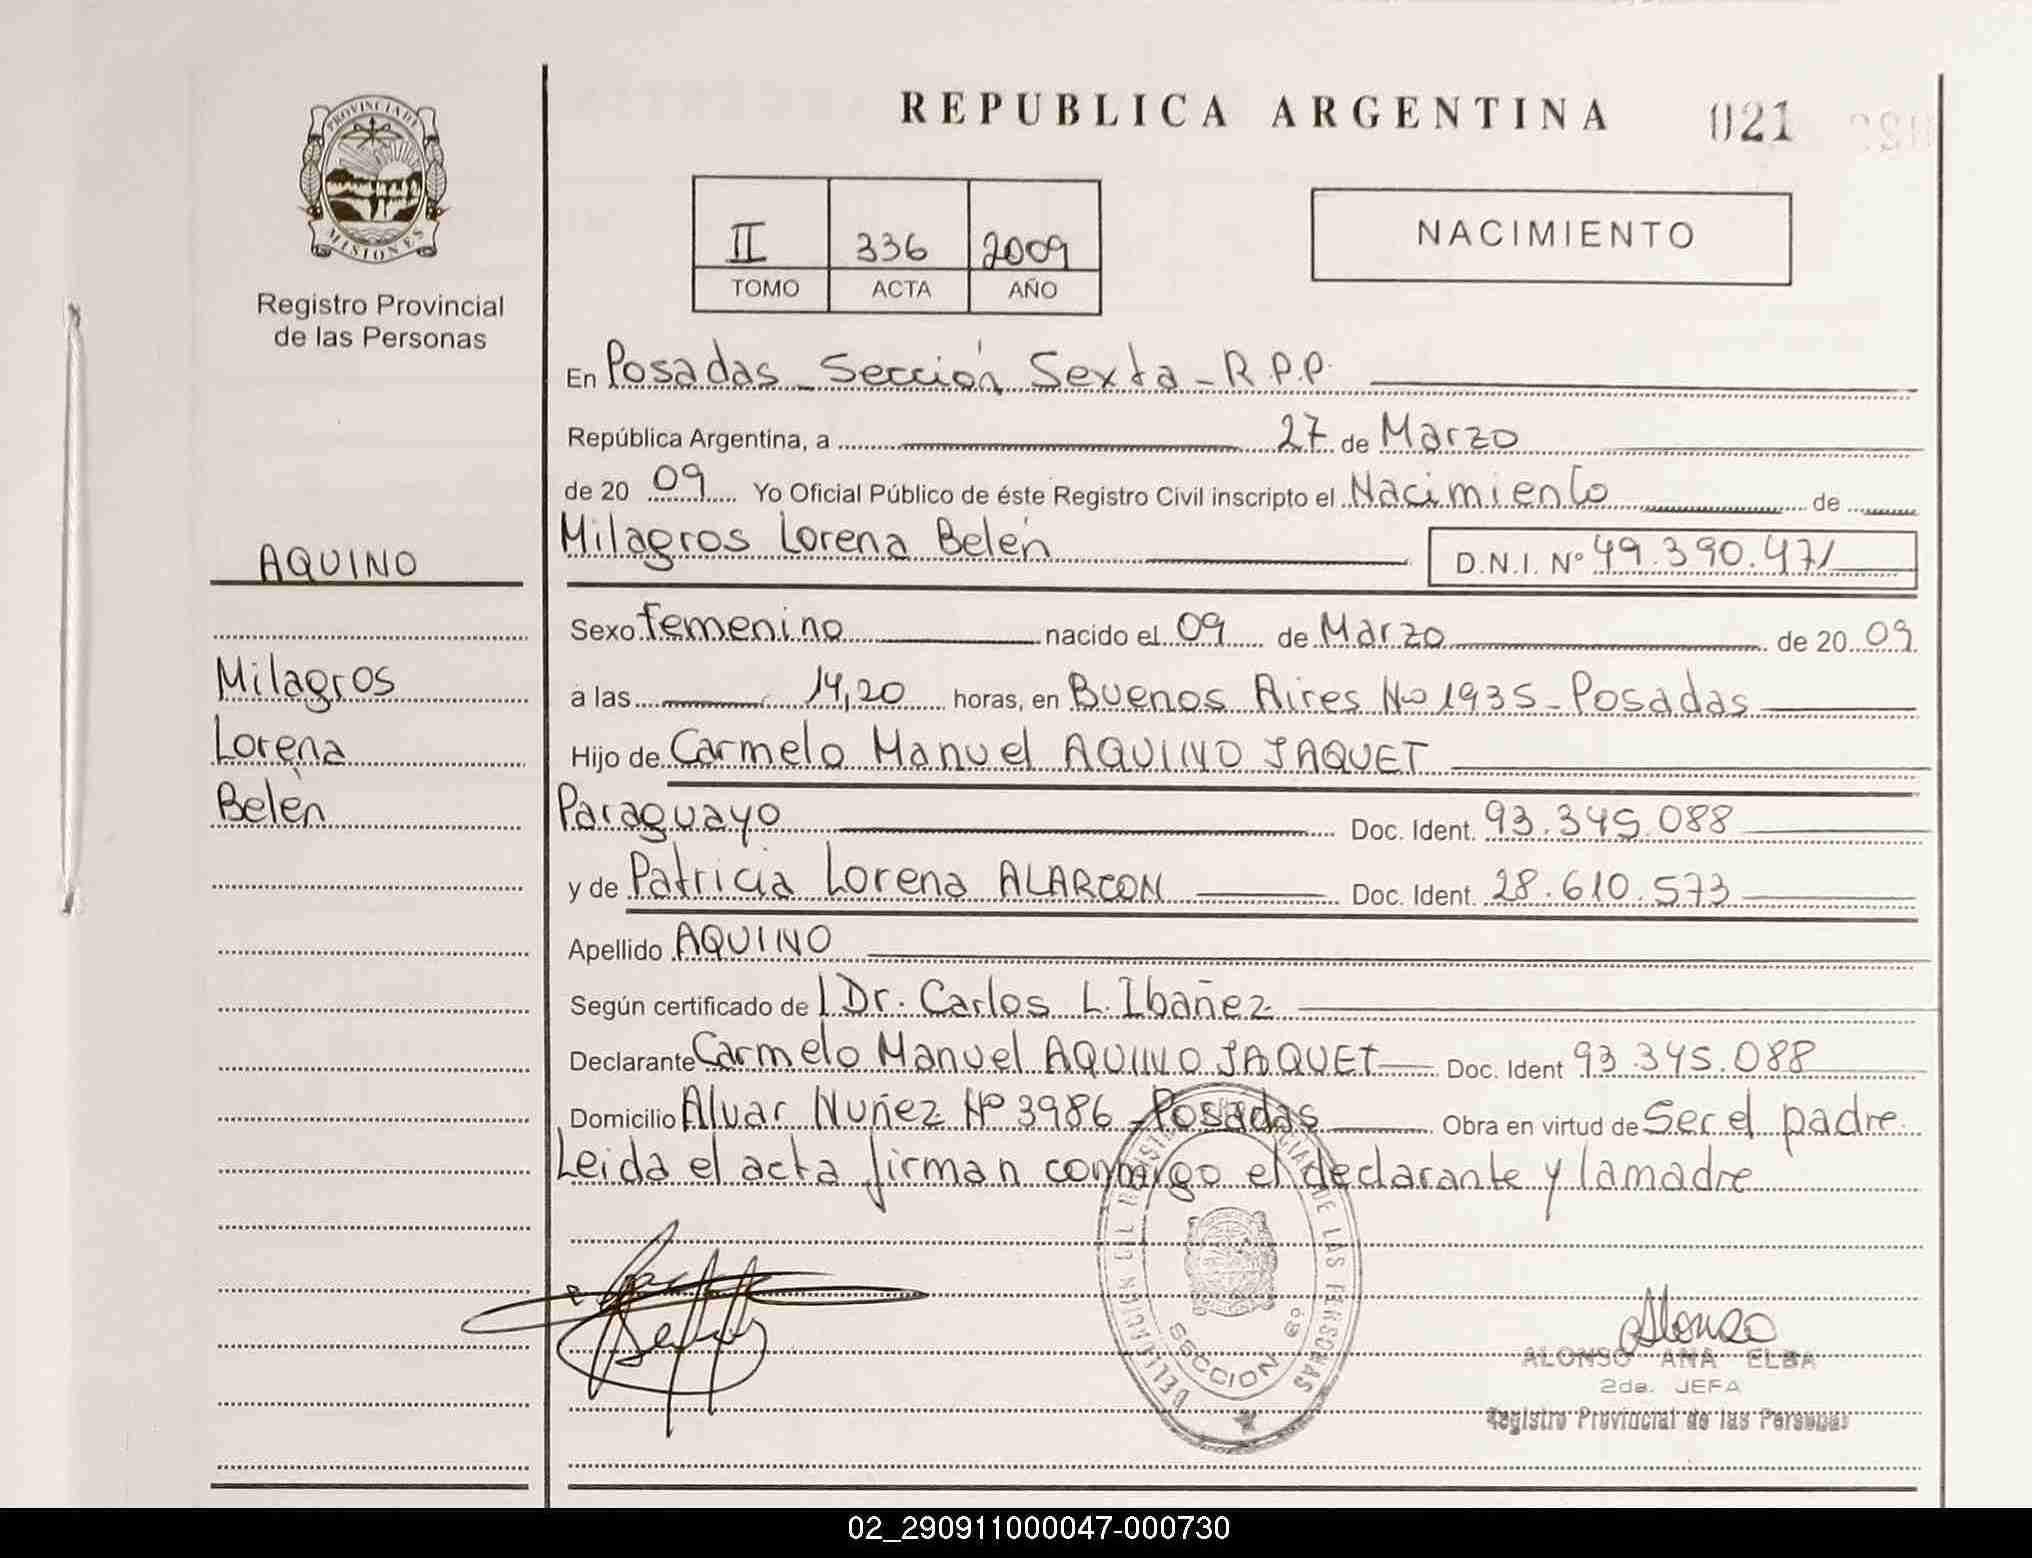 PROVINCIA DE
MISIONES
Registro Provincial
de las Personas
REPUBLICA ARGENTINA 021
II 336 2009
TOMO ACTA AÑO
NACIMIENTO
En Posadas - Sección Sexta - R.P.P.
República Argentina, a 27 de Marzo
de 20 09 Yo Oficial Público de éste Registro Civil inscripto el Nacimiento de
Milagros Lorena Belén D.N.I. Nº 49.390.471
AQUINO
Milagros
Lorena
Belén
Sexo femenino nacido el 09 de Marzo de 20 09
a las 14,20 horas, en Buenos Aires Nº 1935 - Posadas
Hijo de Carmelo Manuel AQUINO JAQUET
Paraguayo Doc. Ident. 93.345.088
y de Patricia Lorena ALARCON Doc. Ident. 28.610.573
Apellido AQUINO
Según certificado de l Dr. Carlos L. Ibañez
Declarante Carmelo Manuel AQUINO JAQUET Doc. Ident 93.345.088
Domicilio Alvar Nuñez Nº 3986 - Posadas Obra en virtud de Ser el padre.
Leida el acta firman conmigo el declarante y la madre
DELEGACION DEL REGISTRO PROVINCIAL DE LAS PERSONAS
SECCION 6º
Alonso
ALONSO ANA ELBA
2da. JEFA
Registro Provincial de las Personas
02_290911000047-000730